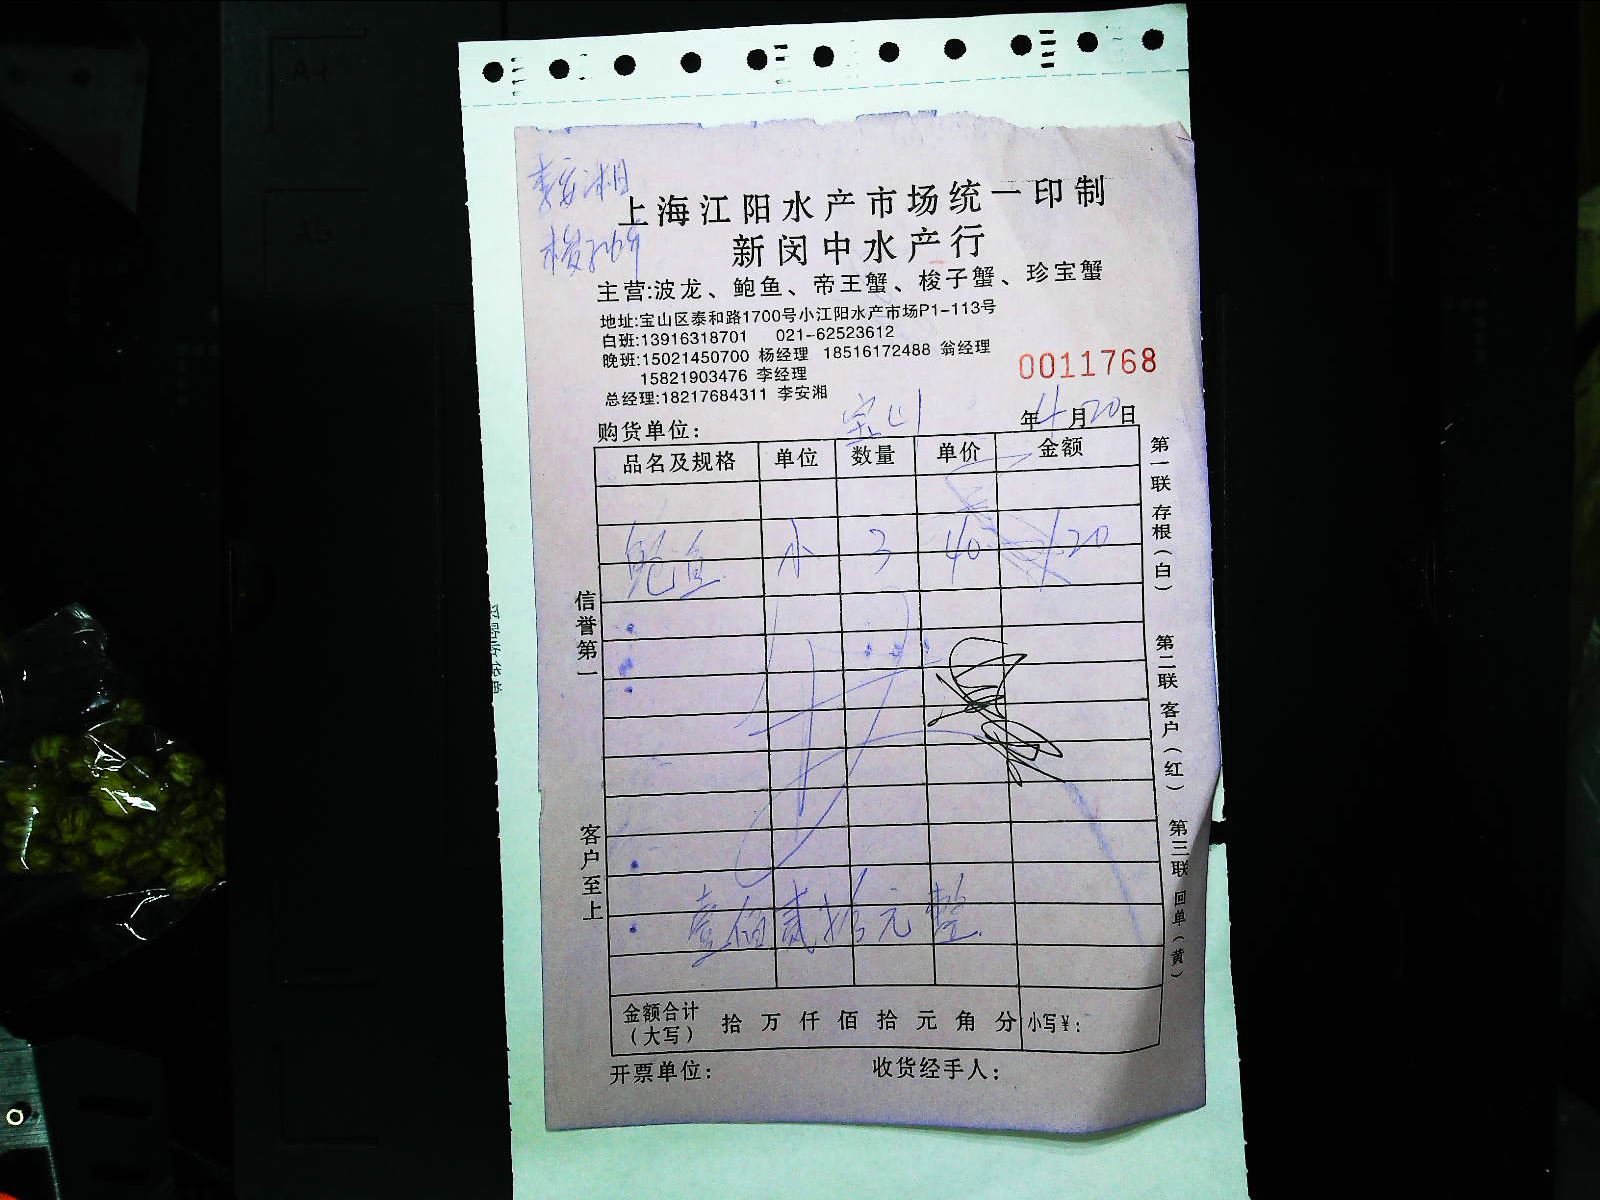 李安湘
上海江阳水产市场统一印制
新闵中水产行
主营:波龙、鲍鱼、帝王蟹、梭子蟹、珍宝蟹
地址:宝山区泰和路1700号小江阳水产市场P1-113号
白班:13916318701 021-62523612
晚班:15021450700 杨经理 18516172488 翁经理
15821903476 李经理
总经理:18217684311 李安湘
0011768
购货单位: 宝山 年4月20日
品名及规格 单位 数量 单价 金额
鲍鱼 小 3 40 120
壹佰贰拾元整
金额合计(大写) 拾 万 仟 佰 拾 元 角 分 小写¥:
开票单位: 收货经手人:
信誉第一
客户至上
第一联 存根(白)
第二联 客户(红)
第三联 回单(黄)